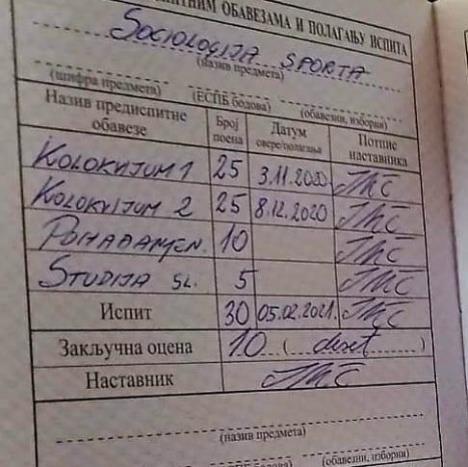 ИТНИМ ОБАВЕЗАМА И ПОЛАГАЊУ ИСПИТА
SOCIOLOGIJA SPORTA
(назив предмета)
(шифра предмета) (ЕСПБ бодова) (обавезни, изборни)
Назив предиспитне обавезе Број поена Датум овере/полагања Потпис наставника
KOLOKVIJUM 1 25 3.11.2020
KOLOKVIJUM 2 25 8.12.2020
POHAĐANJE N. 10
STUDIJA SL. 5
Испит 30 05.02.2021.
Закључна оцена 10 (deset)
Наставник
(назив предмета)
(ЕСПБ бодова) (обавезни, изборни)